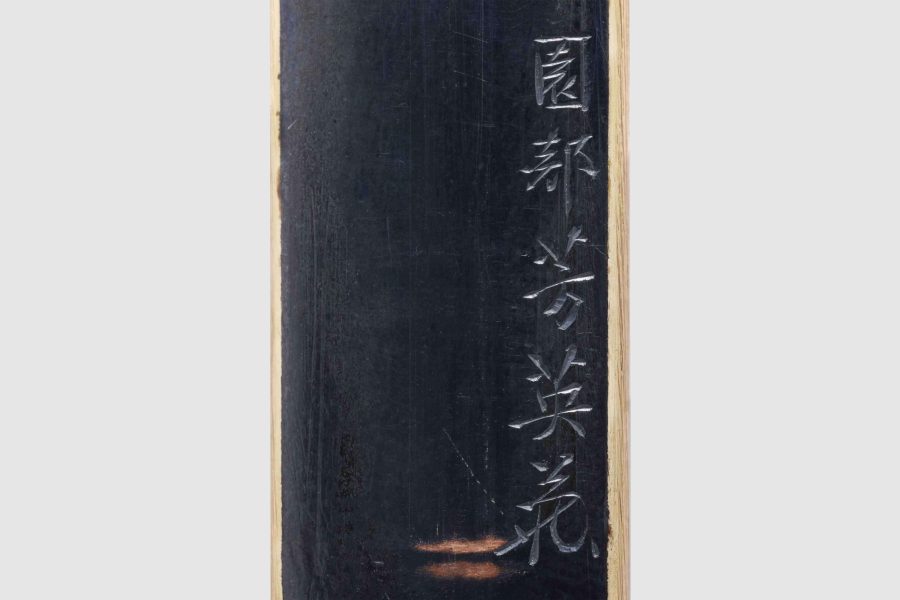 園部芳英